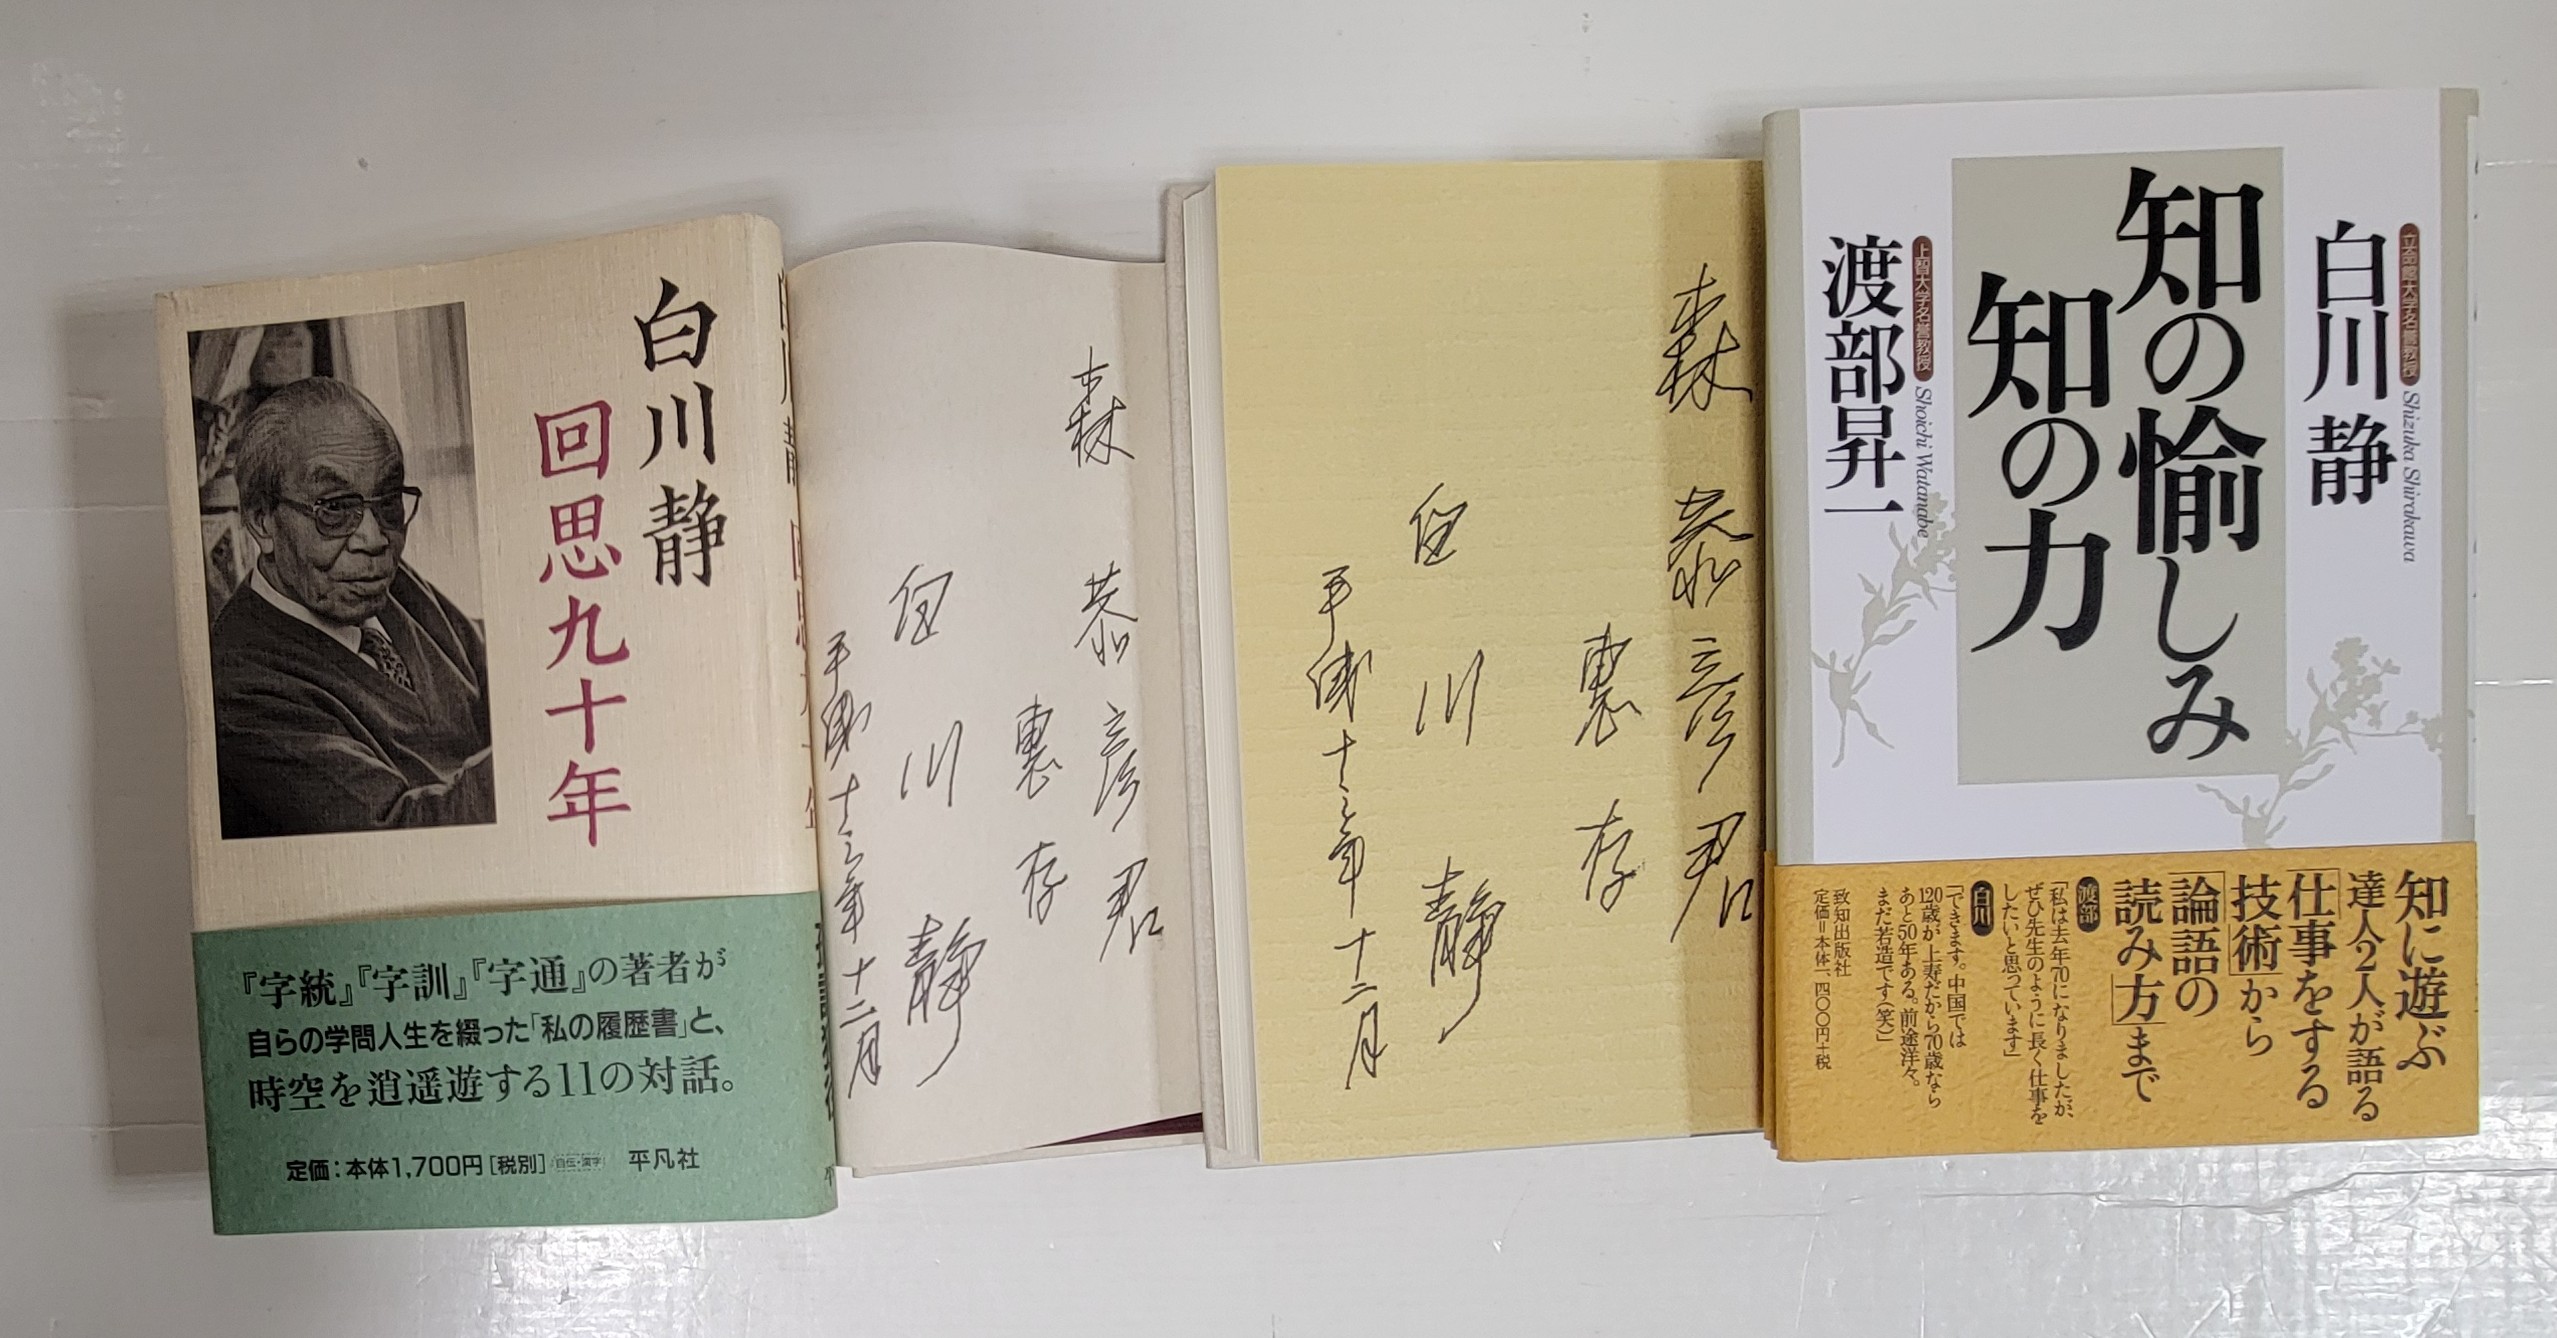 白川静
回思九十年
『字統』『字訓』『字通』の著者が
自らの学問人生を綴った「私の履歴書」と、
時空を逍遥遊する11の対話。
定価：本体1,700円［税別］
自伝・漢字
平凡社
森 恭彦君
恵存
白川静
平成十二年十二月
森 恭彦君
恵存
白川静
平成十二年十二月
立命館大学名誉教授
Shizuka Shirakawa
白川静
知の愉しみ
知の力
上智大学名誉教授
Shoichi Watanabe
渡部昇一
知に遊ぶ
達人2人が語る
仕事をする
技術から
論語の
読み方まで
渡部
「私は去年70になりましたが、
ぜひ先生のように長く仕事を
したいと思っています」
白川
「できます。中国では
120歳が上寿だから70歳なら
あと50年ある。前途洋々。
まだ若造です（笑）」
致知出版社
定価＝本体一、四〇〇円＋税